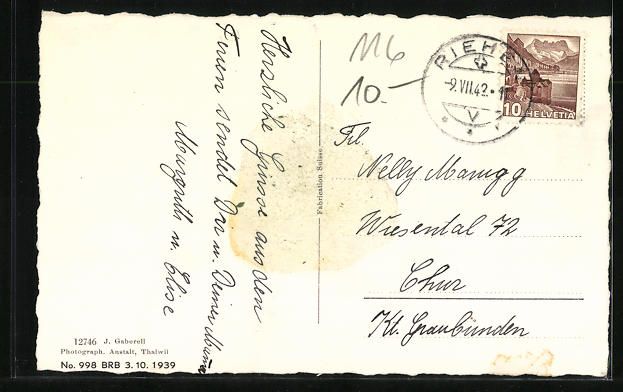 Herzliche Grüsse aus den
Ferien sendet Dir u. Deiner Mama
Margrith u. Elise
12746 J. Gaberell
Photograph. Anstalt, Thalwil
No. 998 BRB 3. 10. 1939
Fabrication Suisse
M6
10.–
RIEHEN
-9.VII.42.-1
V
10 HELVETIA
Frl.
Nelly Marugg
Wiesental 72
Chur
Kt. Graubünden